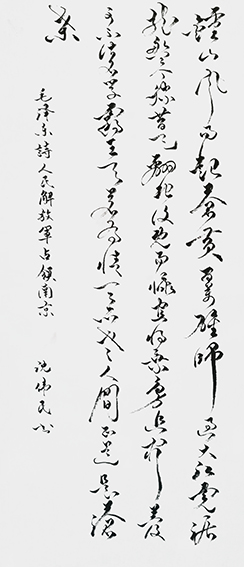 鐘山風雨起蒼黃百萬雄師過大江虎踞
龍盤今勝昔天翻地覆慨而慷宜將剩勇追窮寇
不可沽名學霸王天若有情天亦老人間正道是滄
桑
毛澤東詩人民解放軍占領南京
沈偉民書